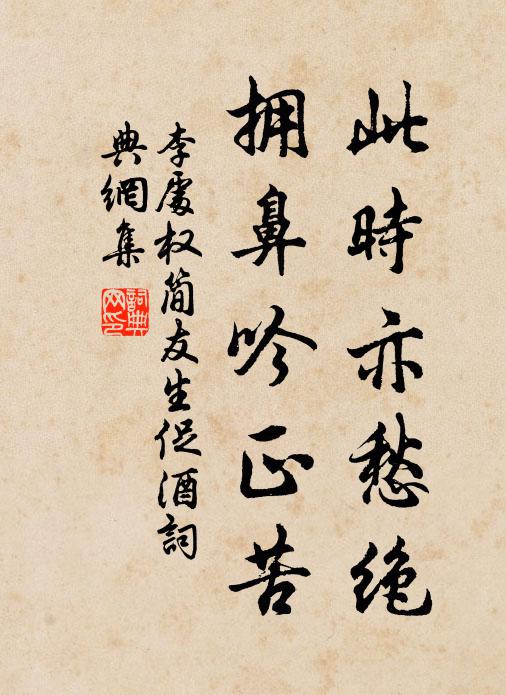 此時亦愁绝
拥鼻吟正苦
李處权简友生促酒詞
典網集
詞典网印